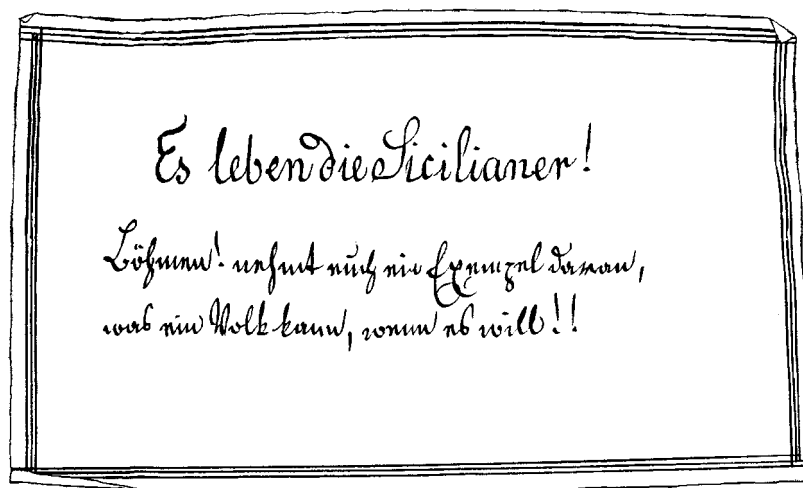 Es leben die Sicilianer!
Böhmen! nehmt euch ein Exempel daran,
was ein Volk kann, wenn es will!!